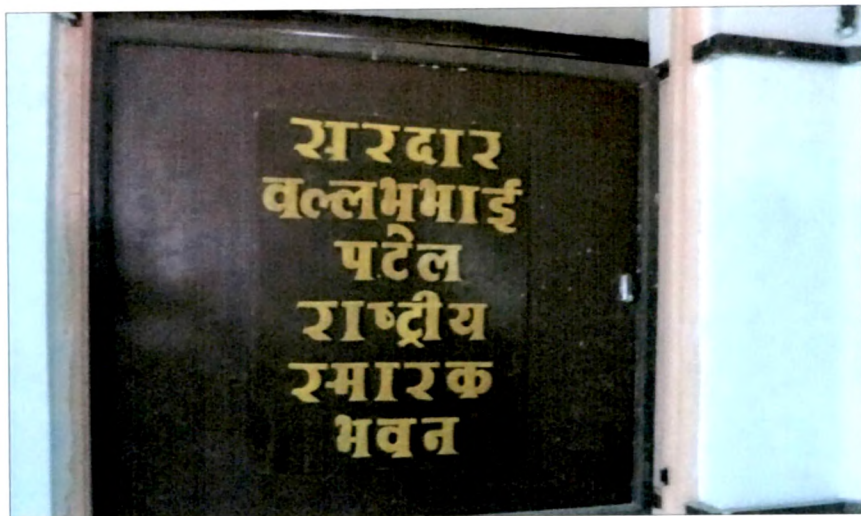 सरदार
वल्लभभाई
पटेल
राष्ट्रीय
स्मारक
भवन